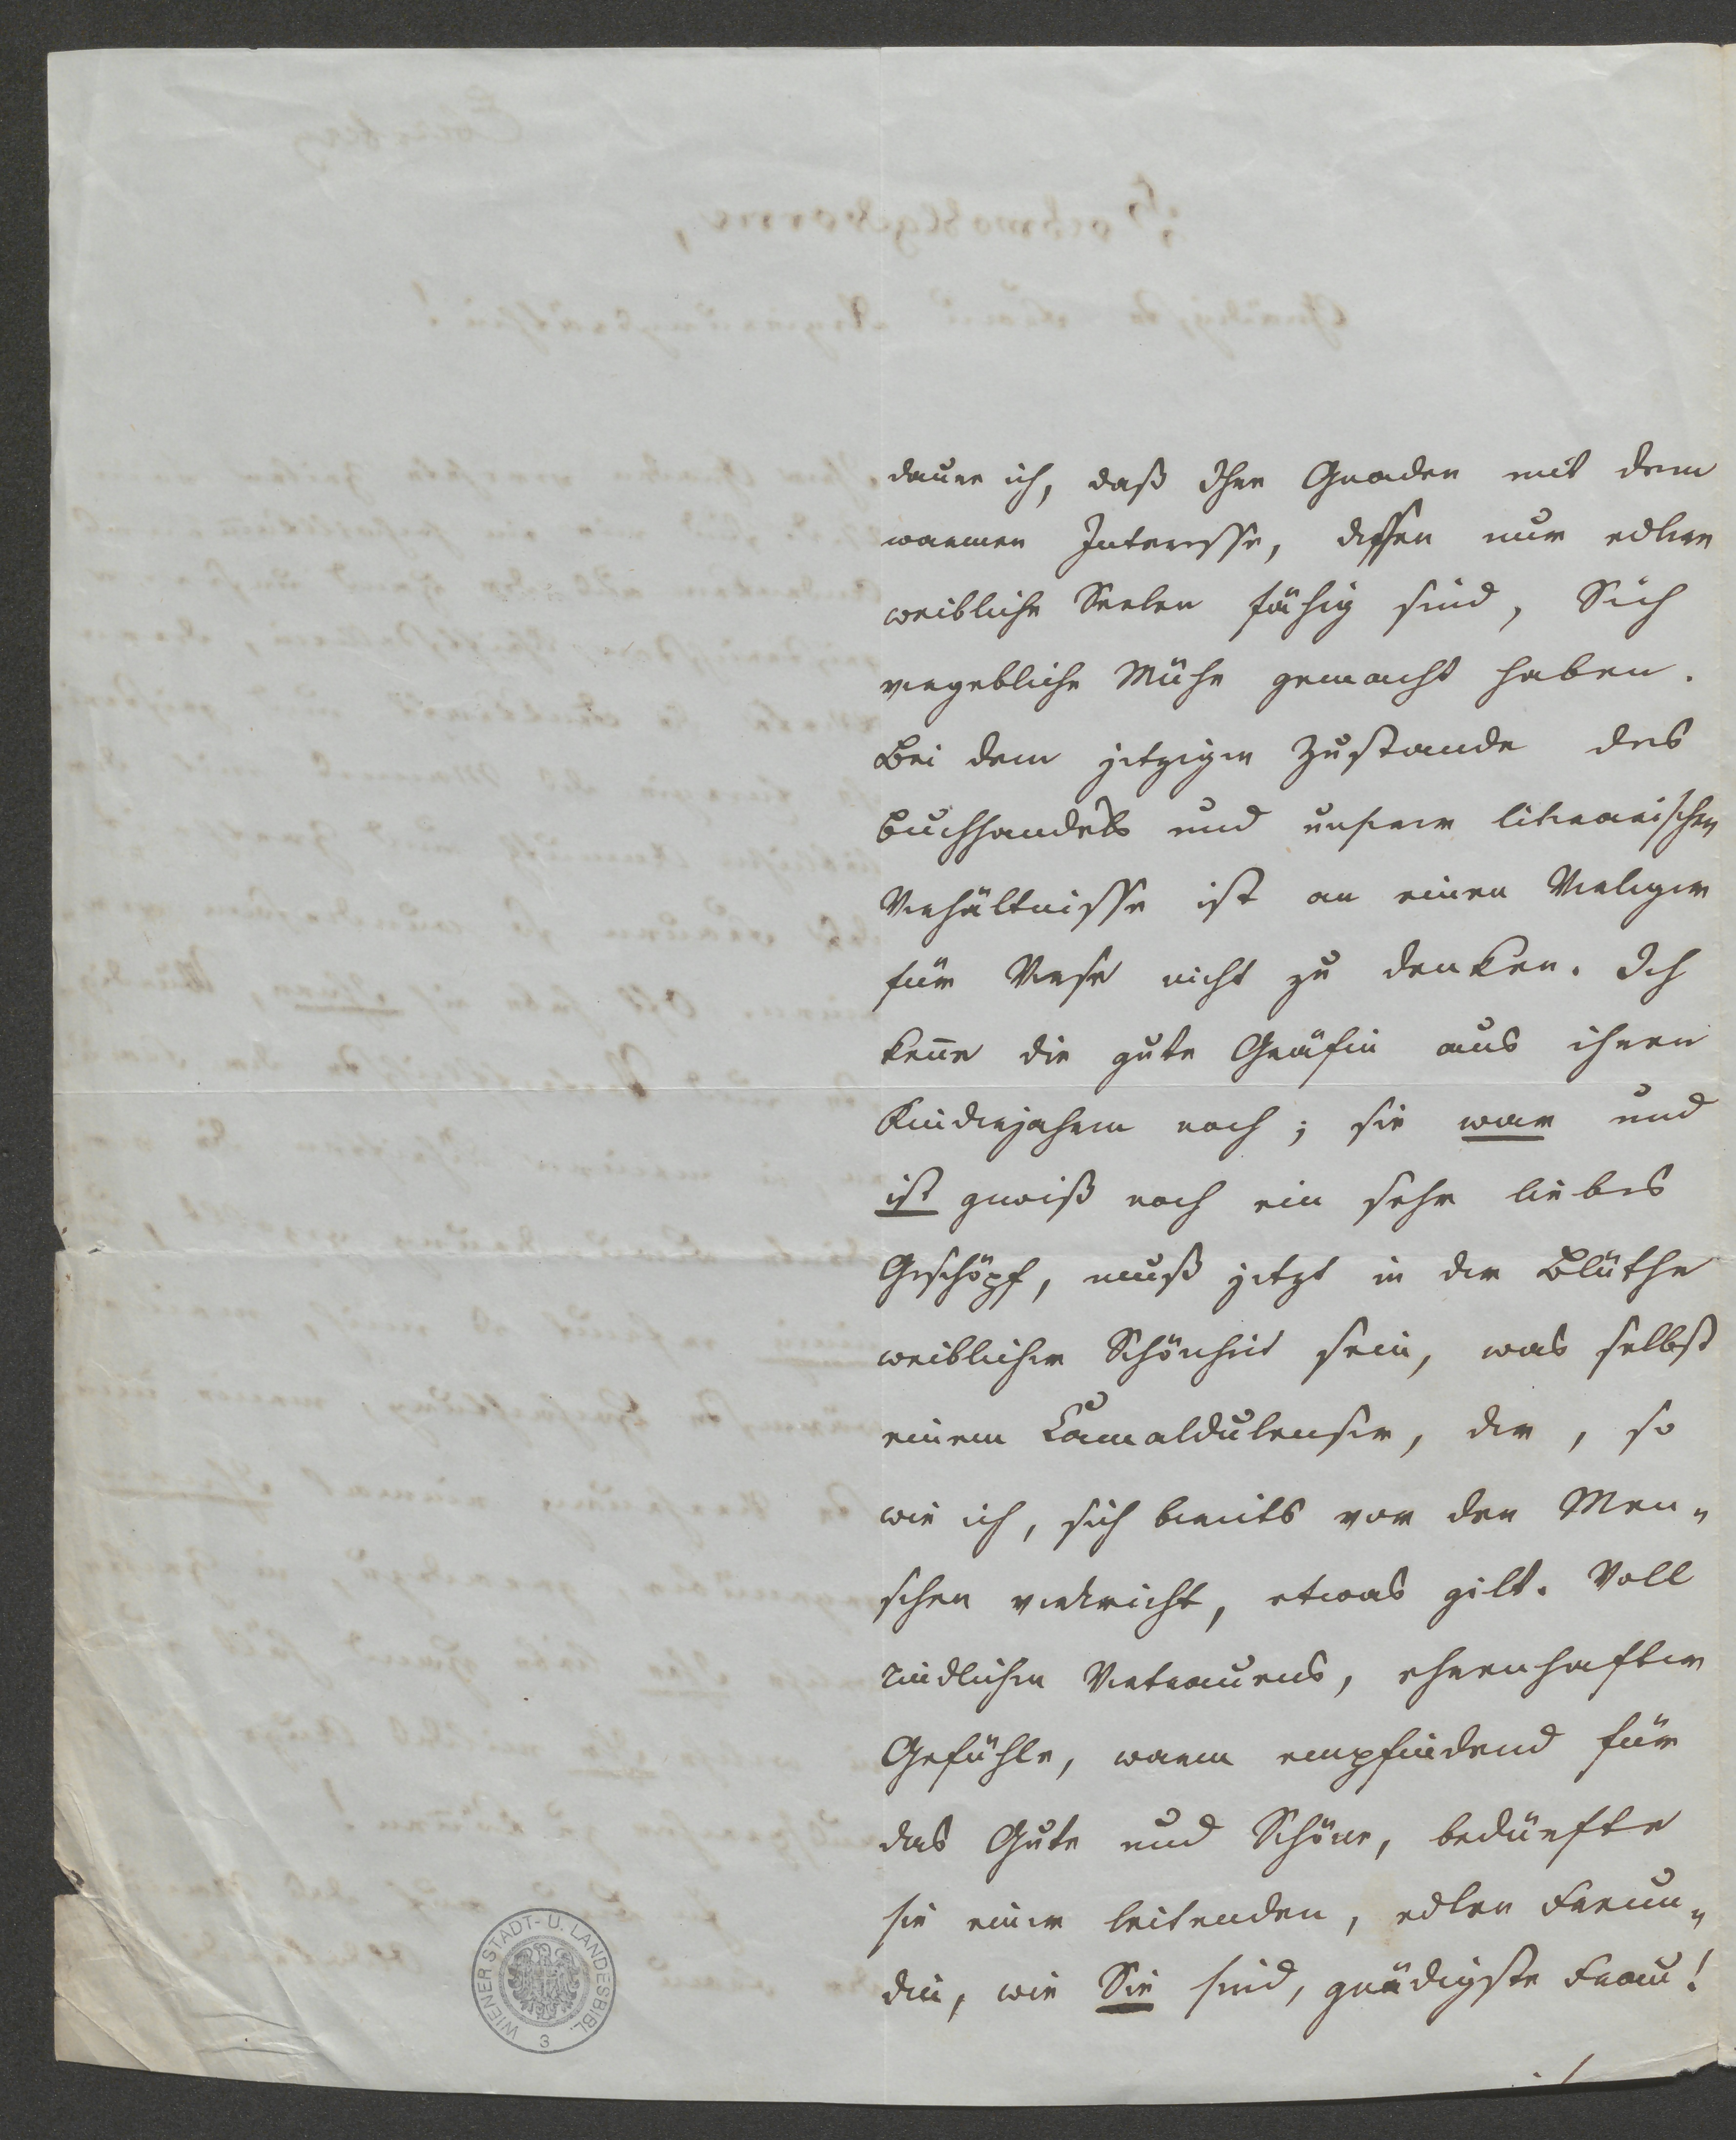 daure ich, daß Ihre Gnaden mit dem
warmen Interesse, dessen nur edlere
weibliche Seelen fähig sind, Sich
vergebliche Mühe gemacht haben.
Bei dem jetzigen Zustande des
Buchhandels und unserer literarischen
Verhältnisse ist an einen Verleger
für Verse nicht zu denken. Ich
keñe die gute Gräfin aus ihren
Kinderjahren noch; sie war und
ist gewiß noch ein sehr liebes
Geschöpf, muß jetzt in der Blüthe
weiblicher Schönheit sein, was selbst
einem Camaldulenser, der, so
wie ich, sich bereits vor den Men„
schen verkriecht, etwas gilt. Voll
kindlichen Vertrauens, ehrenhafter
Gefühle, warm empfindend für
das Gute und Schöne, bedürfte
sie einer leitenden, edlen Freun„
din, wie Sie sind, gnädigste Frau!
./.
WIENER STADT- U. LANDESBIBL.
3